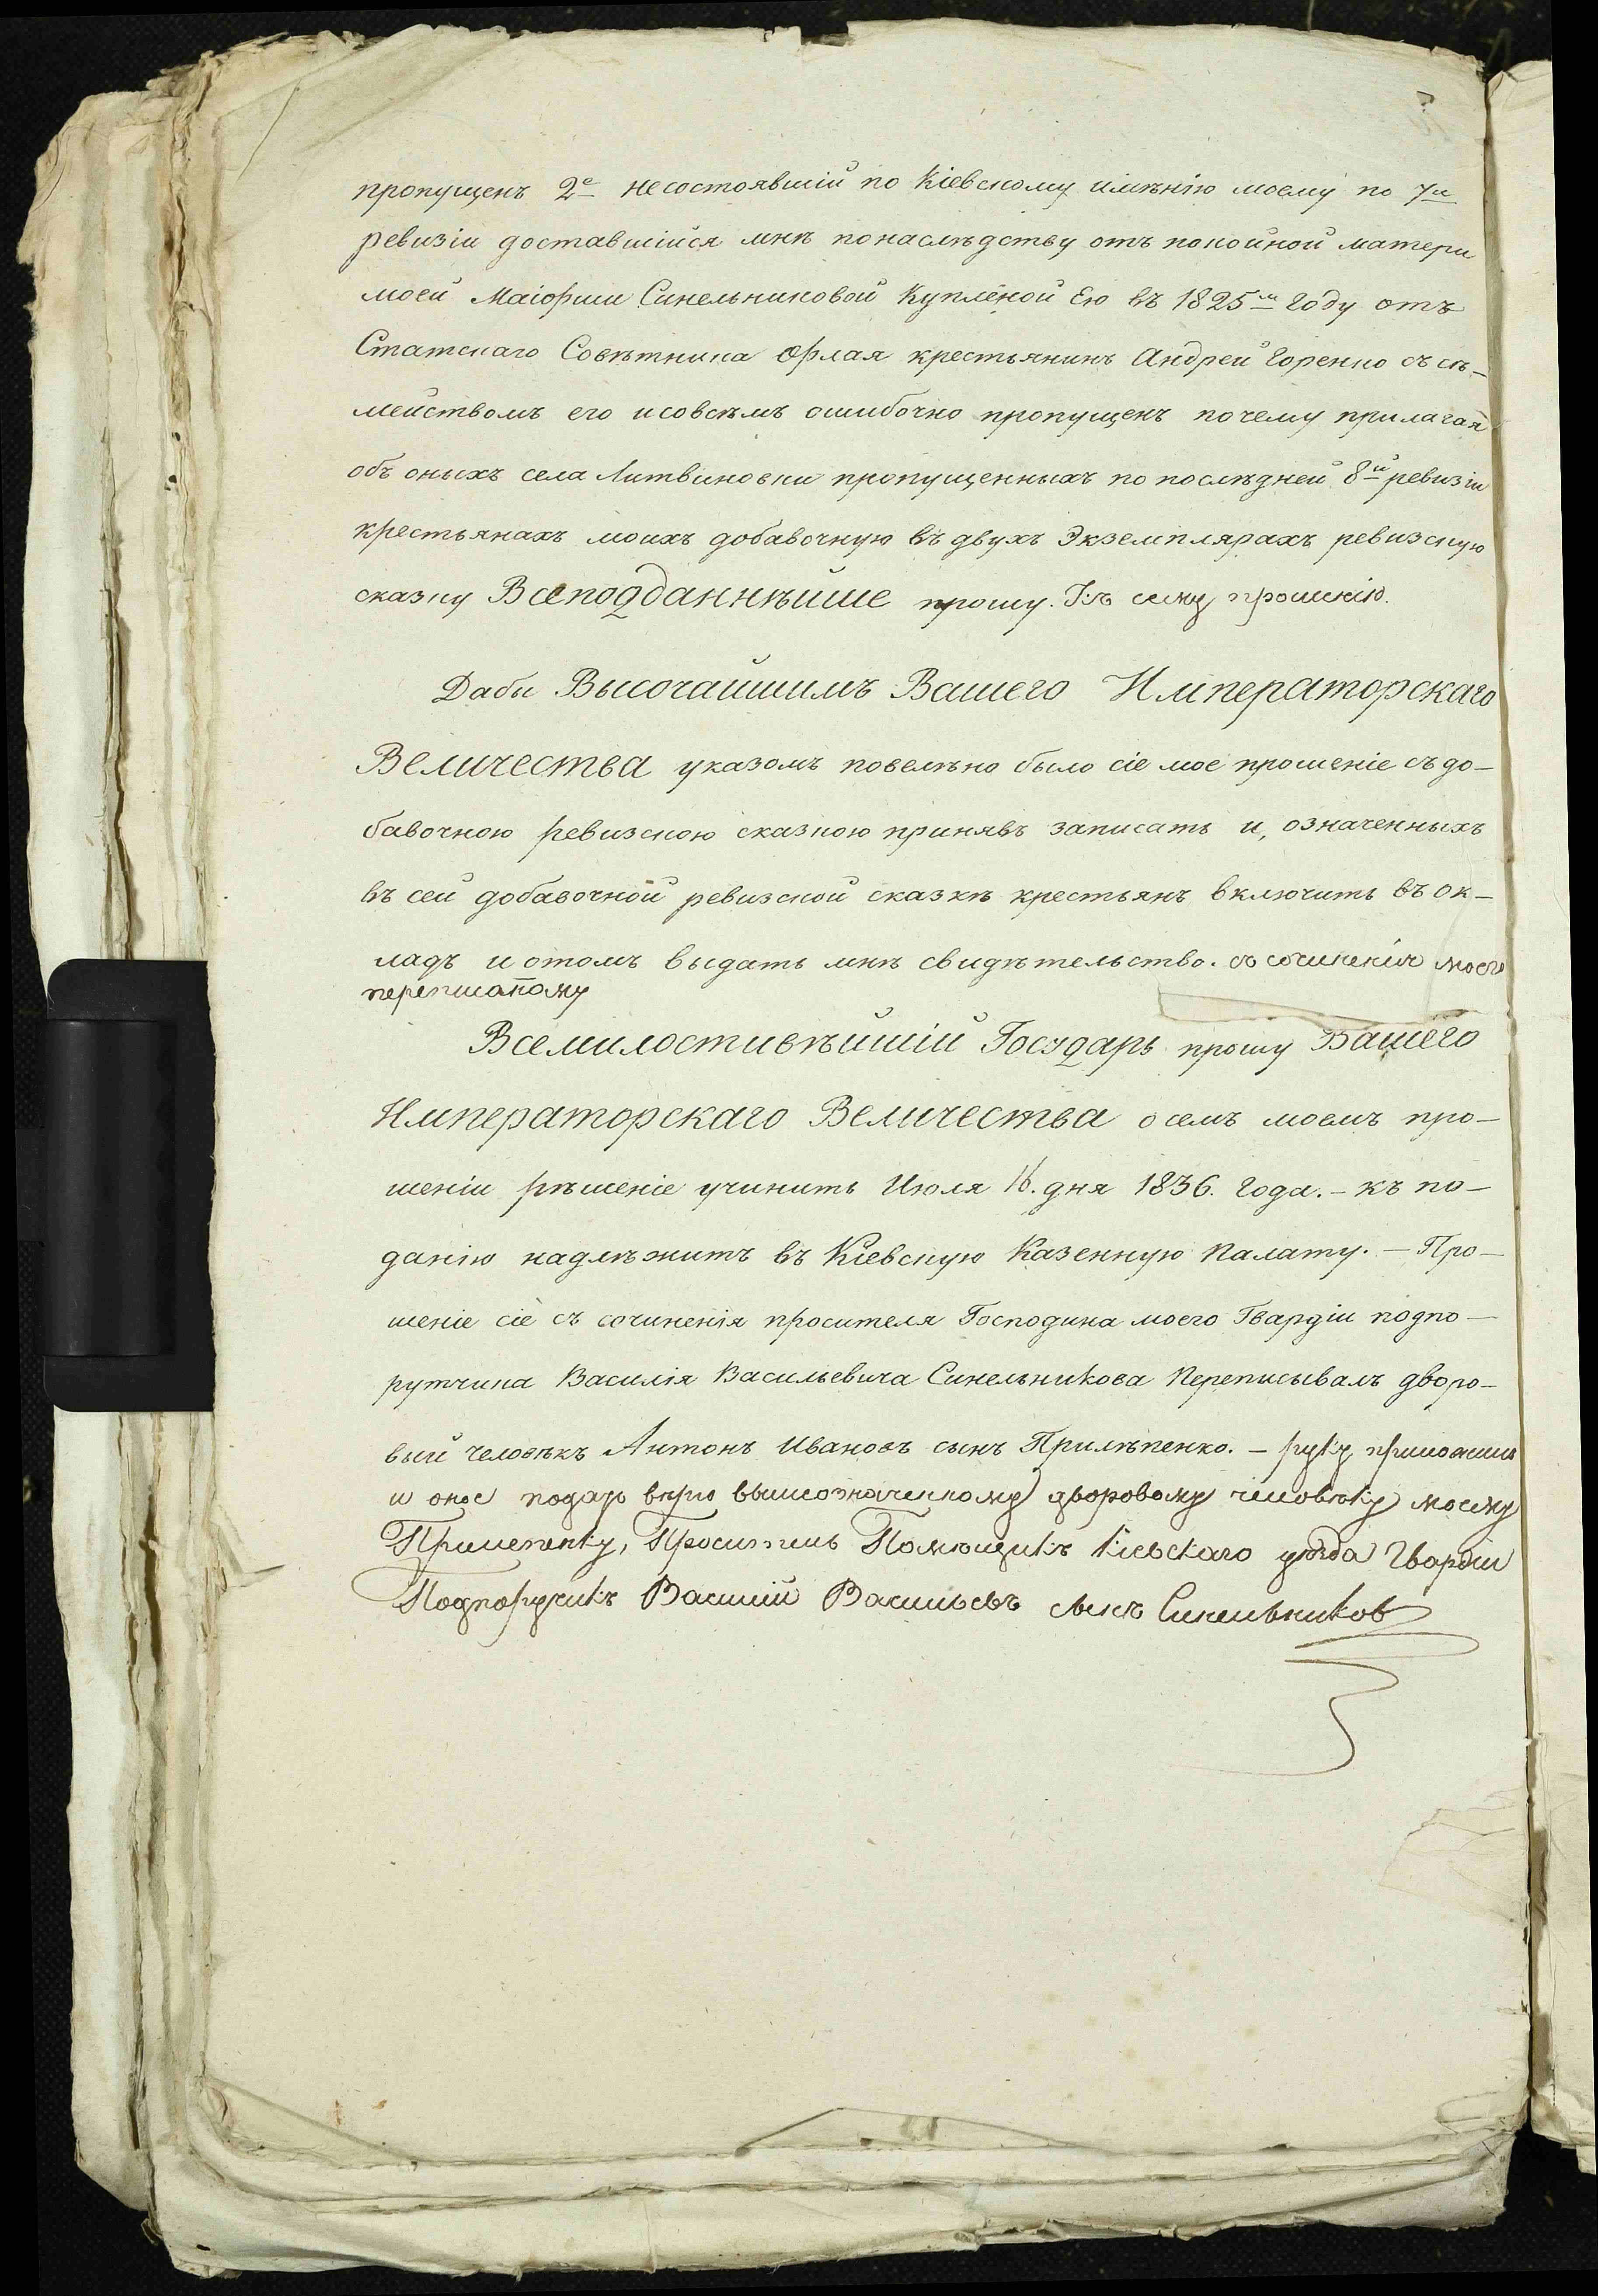 пропущенъ 2е несостоявшій по Кіевскому имѣнію моему по 7й
ревизіи доставшійся мнѣ понаслѣдству отъ покойной матери
моей Маіорши Синельниковой Купленой Ею въ 1825м Году отъ
Статскаго Совѣтника Орлая крестьянинъ Андрей Горенко съ сѣ-
мействомъ его и совсѣмъ ошибочно пропущенъ почему прилагая
объ оныхъ села Литвиновки пропущенныхъ по послѣдней 8й ревизіи
крестьянахъ моихъ добавочную въ двухъ Экземплярахъ ревизскую
сказку Всеподданнѣйше прошу. Къ сему прошенію.
Дабы Высочайшимъ Вашего Императорскаго
Величества указомъ повелѣно было сіе мое прошеніе съ до-
бавочною ревизскою сказкою принявъ записать и, означенныхъ
въ сей добавочной ревизской сказкѣ крестьянъ включить въ ок-
ладъ и отомъ выдать мнѣ свидѣтельство. съ сочиненія моего
переписаному
Всемилостивѣйшій Государь прошу Вашего
Императорскаго Величества о семъ моемъ про-
шеніи рѣшеніе учинить Июля 16. дня 1836. Года. - къ по-
данію надлѣжитъ въ Кіевскую Казенную Палату. - Про-
шеніе сіе съ сочиненія просителя Господина моего Гвардіи подпо-
рутчика Василія Васильевича Синельникова Переписывалъ дворо-
вый человѣкъ Антонъ Ивановъ сынъ Прилѣпенко. - руку приложилъ
и оное подать вѣрю вышеозначенному дворовому человѣку моему
Прилепенку, Проситель Помѣщикъ Кіевскаго уѣзда Гвардіи
Подпоручикъ Василій Васильевъ сынъ Синельников